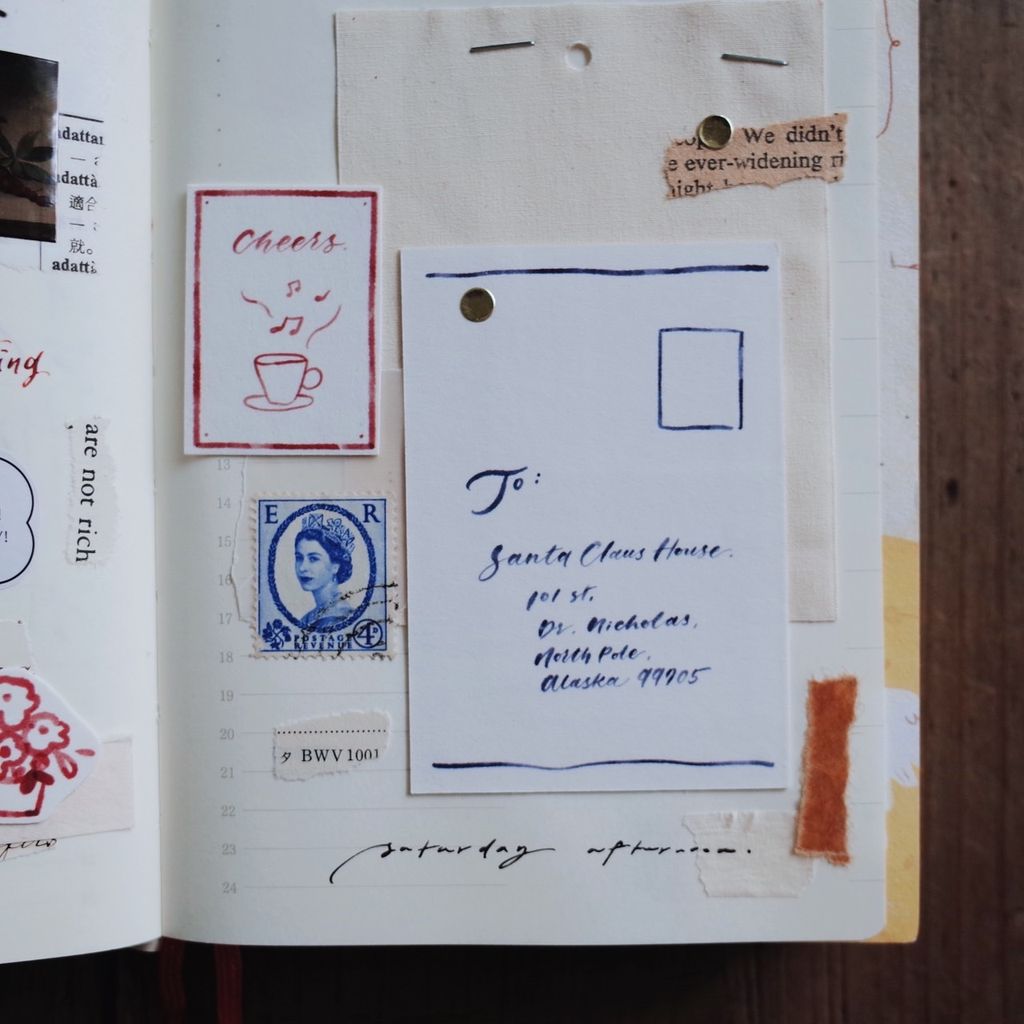 adatta
適合
adattà
就。
adattà
ing
are not rich
We didn't
e ever-widening ri
Cheers.
To:
Santa Claus House.
101 st.
Dr. Nicholas,
North Pole,
Alaska 99705
E R
POSTAGE
REVENUE
4D
夕 BWV 1001
13
14
15
16
17
18
19
20
21
22
23
24
saturday afternoon.